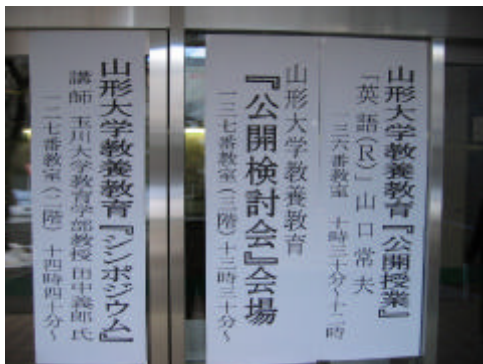 山形大学教養教育『公開授業』
「英語(R)」山口常夫
三六番教室 十時三十分~十二時
山形大学教養教育
『公開検討会』会場
一三七番教室(三階)十三時三十分~
山形大学教養教育『シンポジウム』
講師 玉川大学教育学部教授 田中義郎 氏
一二七番教室(二階)十四時四十分~